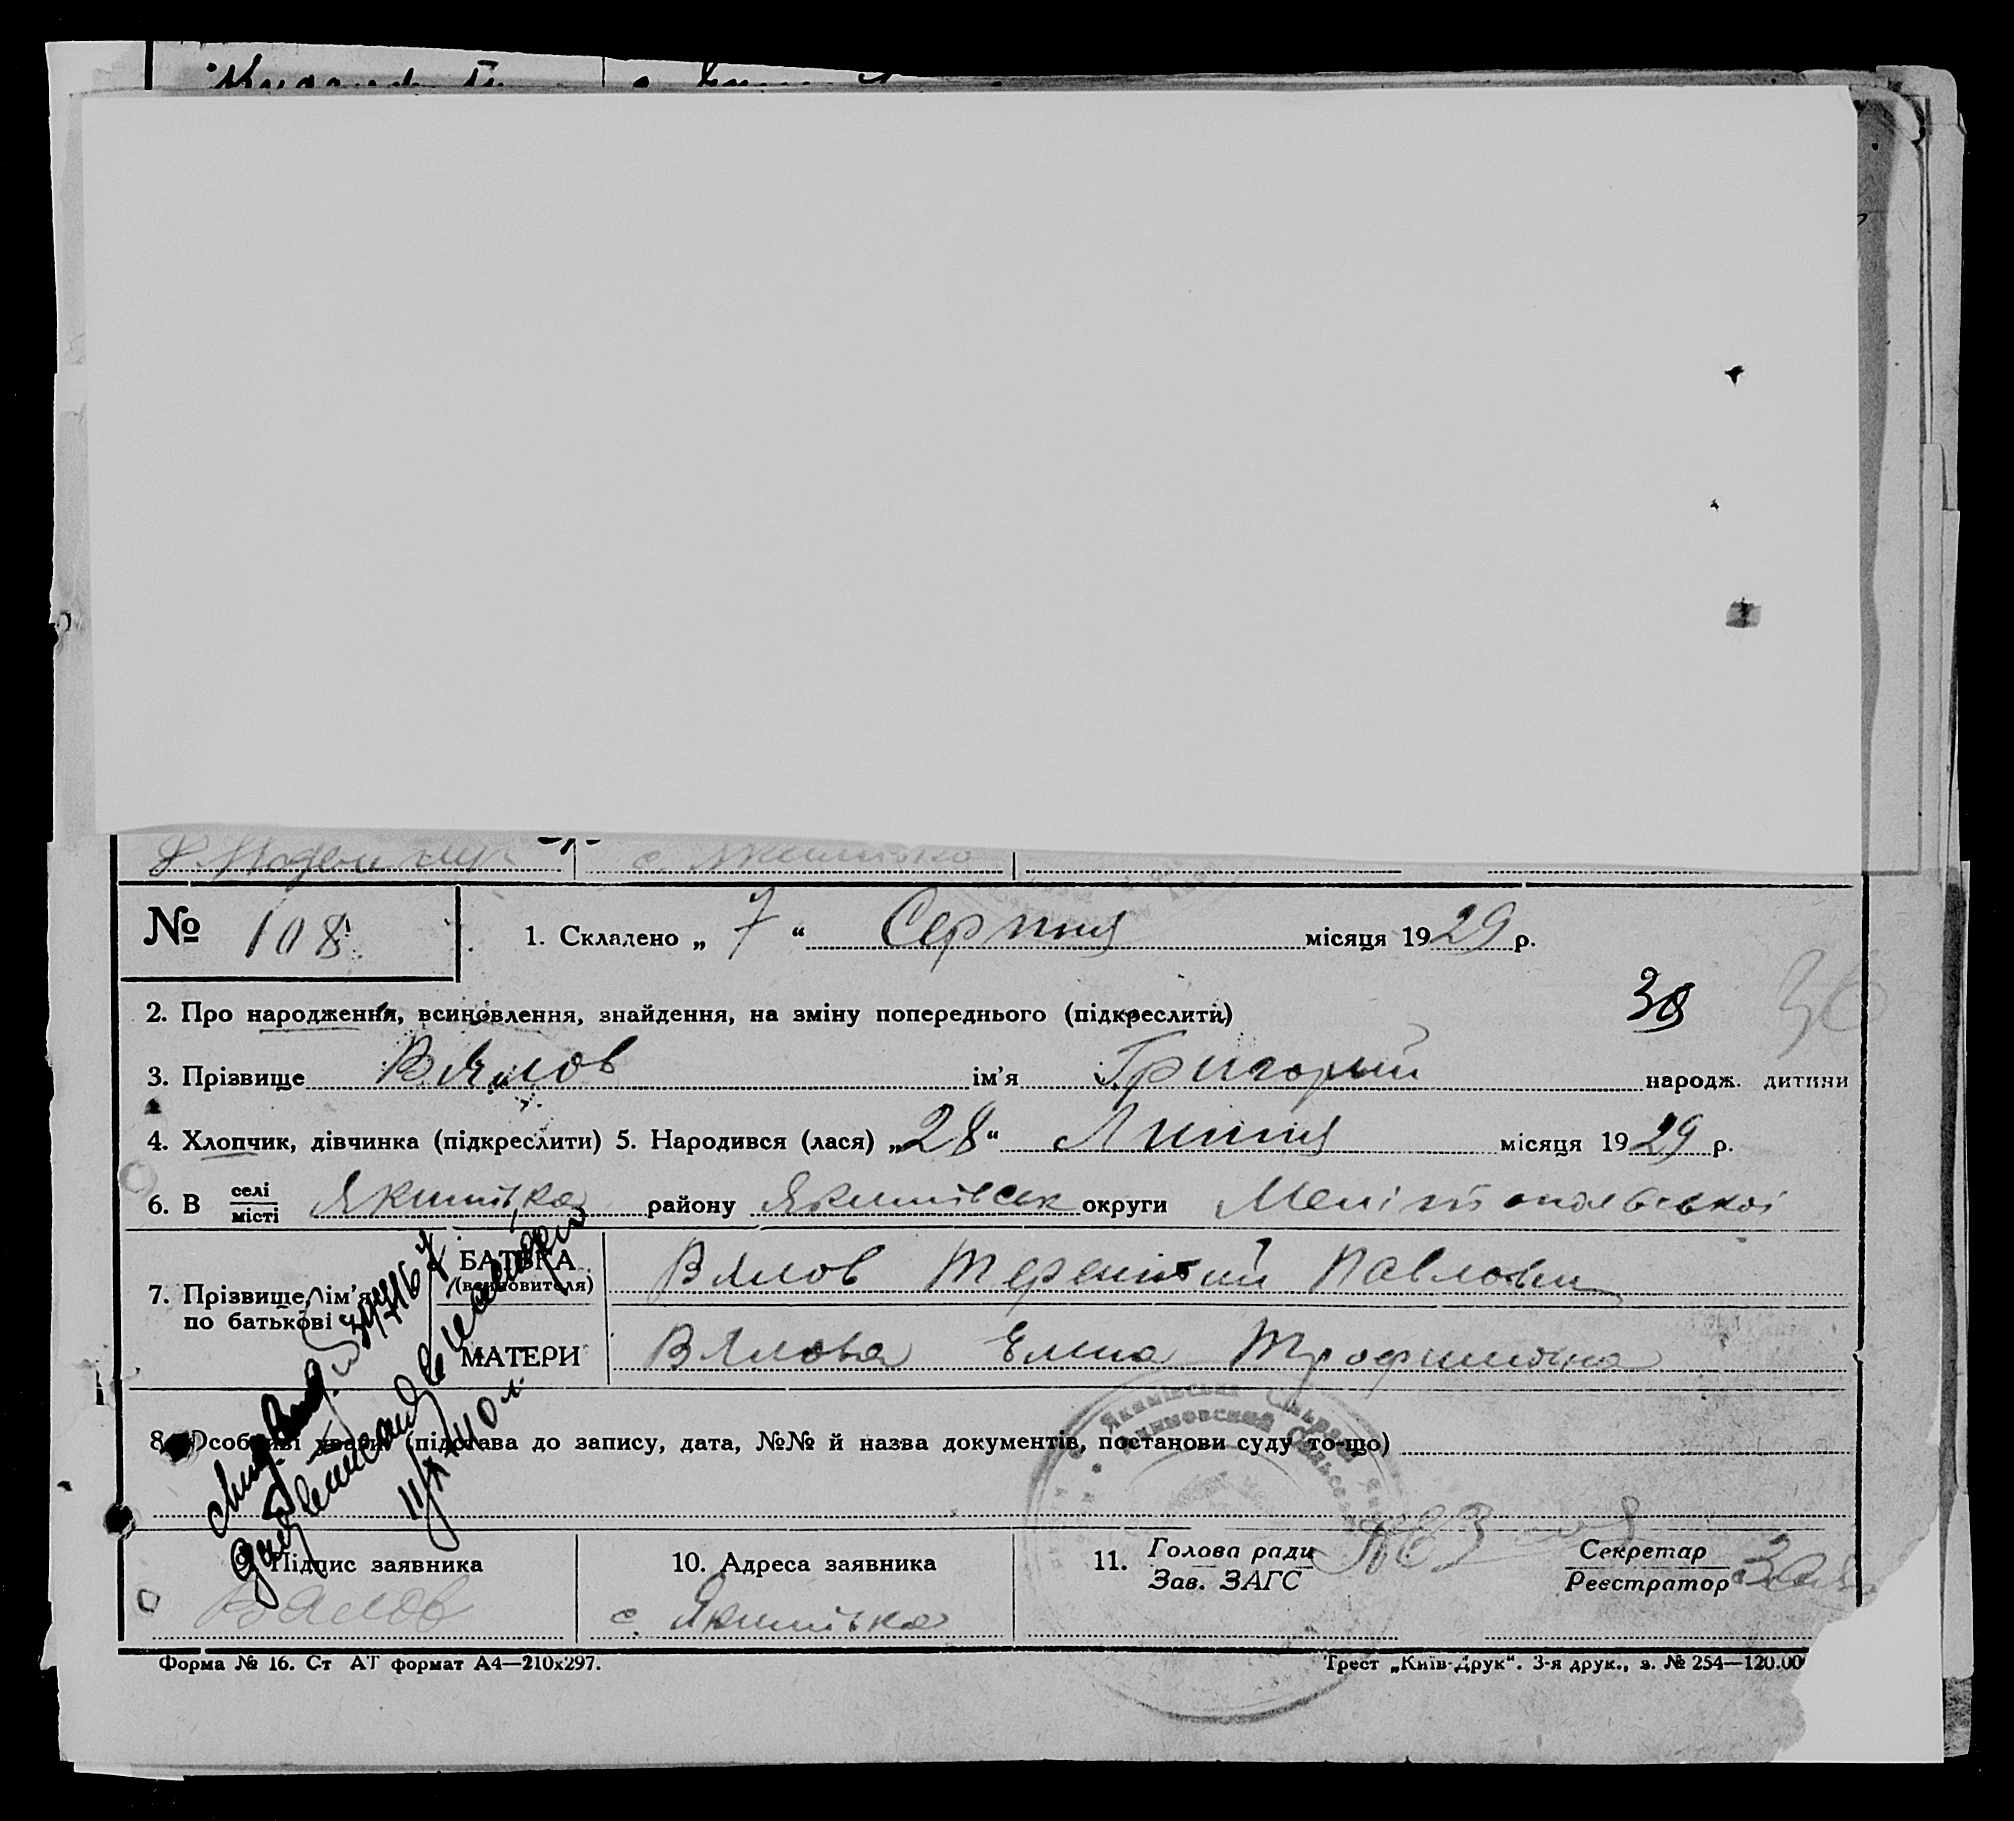 с. Якимівка
№ 108 1. Складено „ 7 “ Серпня місяця 1929 р.
2. Про народження, всиновлення, знайдення, на зміну попереднього (підкреслити) 38 36
3. Прізвище Вялов ім'я Григорий народж. дитини
4. Хлопчик, дівчинка (підкреслити) 5. Народився (лася) „ 28 “ Липня місяця 1929 р.
6. В селі/місті Якимівка району Якимівськ округи Мелітопольської
7. Прізвище, ім'я по батькові
БАТЬКА (всиновителя) Вялов Терентий Павлович
МАТЕРИ Вялова Елена Трофимовна
8. Особливі уваги (підстава до запису, дата, №№ й назва документів, постанови суду то-що)
Підпис заявника 10. Адреса заявника 11. Голова ради / Зав. ЗАГС Секретар / Реєстратор
Вялов с. Якимівка
Форма № 16. Ст АТ формат А4—210х297. Трест „Київ-Друк“. 3-я друк., з. № 254—120.00